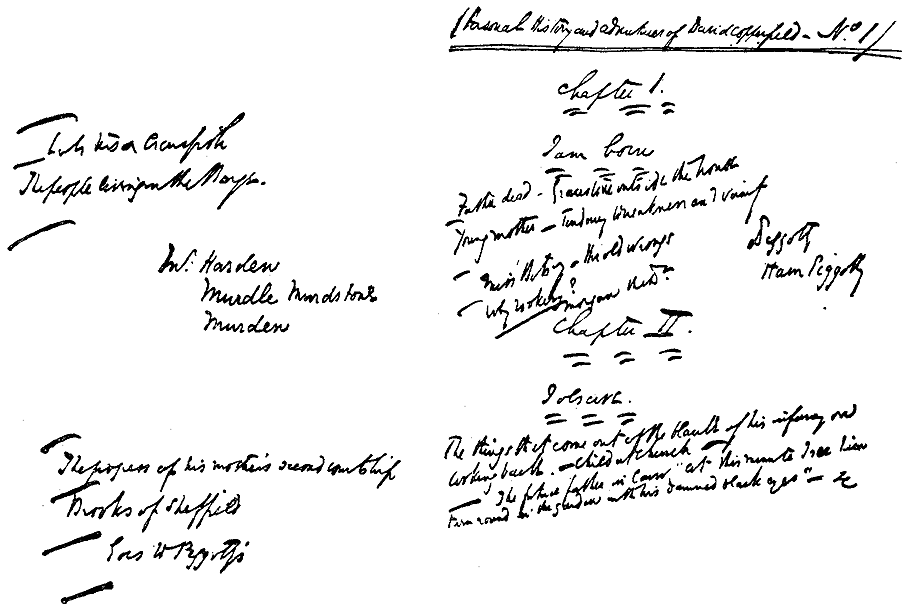 (Personal History and adventures of David Copperfield – No. 1)
Chapter I.
I am born
Father dead – Gravestone outside the house
Young mother – tendency to weakness and vanity
Peggotty
Ham Peggotty
Miss Betsey – the old wrongs
Why Rookery?
Chapter II.
I observe.
The things that come out of the blank of his infancy on
looking back. – Child at church –
The future father in law – "at this minute I see him
turn round in the garden with his damned black eyes" – &c
The people living on the
Mr. Harden
Murdle Murdstone
Murden
The progress of his mother's second courtship
Brooks of Sheffield
Goes to Peggotty's